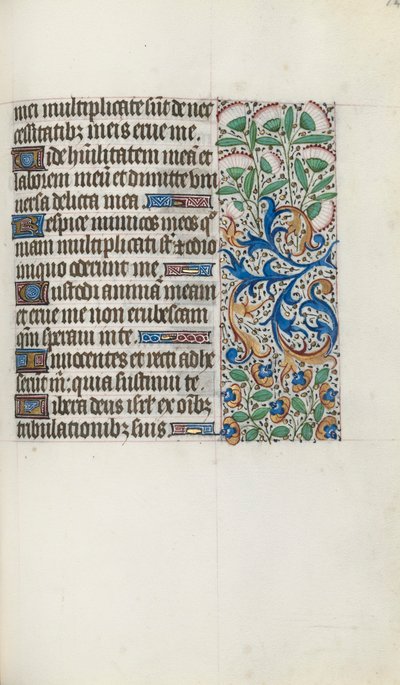 mei multiplicate sūt de nec
cessitatibz meis erue me.
Vide hūilitatem meā et
laborem meū et dimitte vni
uersa delicta mea
Respice inimicos meos qm̄
niam multiplicati sť et odio
iniquo oderunt me
Custodi animā meam
et erue me non erubescam
qm̄ speraui in te
Innocentes et recti adhe
serūt m̄: quia sustinui te.
Libera deus isrl̄ ex oībz
tribulationibz suis